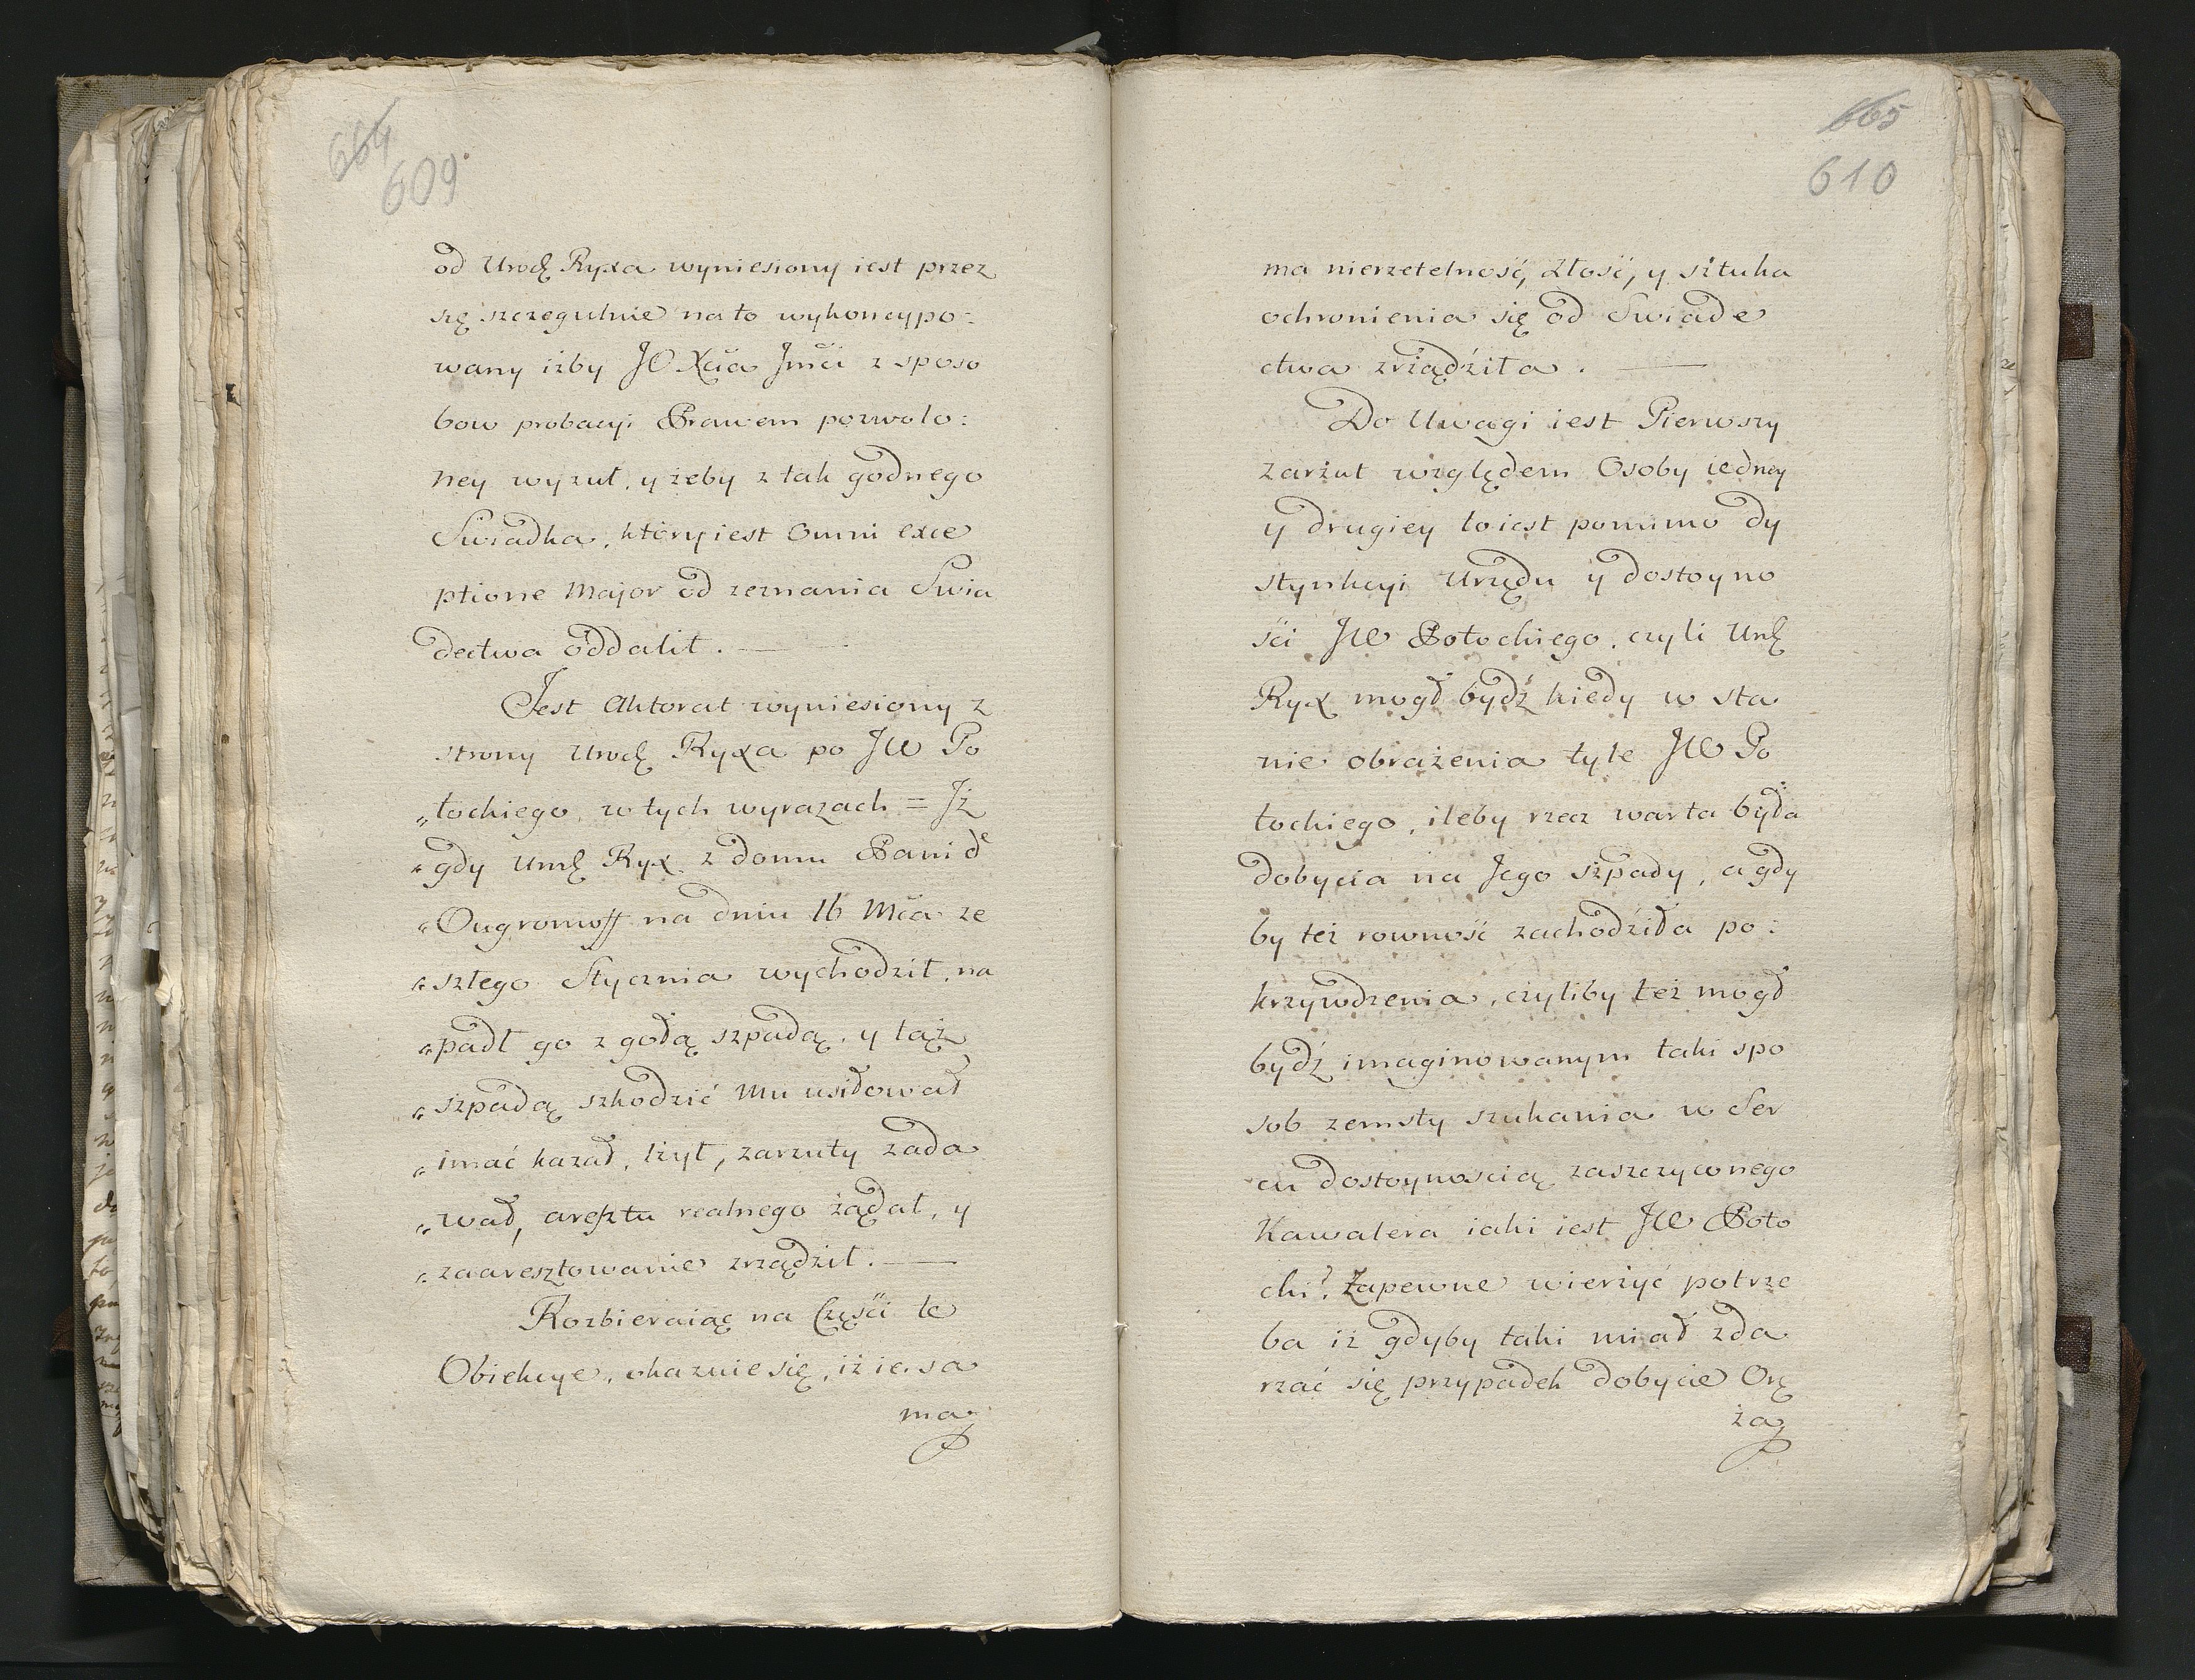 664
609
od Urodz Ryxa wyniesiony iest przez
się szczegulnie na to wykoncypo:
wany iżby JO Xcia Jmci z sposo
bow probacyi Prawem pozwolo:
ney wyzuł, y żeby z tak godnego
Swiadka, który iest Omni exce
ptione Major od zeznania Swia
dectwa oddalił.
Jest Aktorat wyniesiony z
strony Urodz Ryxa po JW Po
„tockiego, w tych wyrazach = Jż
„gdy Urodz Ryx z domu Pani d'
„Ougromoff na dniu 16 Mca ze
„szłego Stycznia wychodził, na
„padł go z gołą szpadą, y tąż
„szpadą szkodzić Mu usiłował
„imać kazał, lżył, zarzuty zada
„wał, aresztu realnego żądał, y
„zaaresztowanie zrządził.
Rozbieraiąc na Części te
Obiekcye, okazuie się, iż ie. sa
ma
665
610
ma nierzetelność, złość, y sztuka
ochronienia się od Swiade
ctwa zrządziła.
Do Uwagi iest Pierwszy
zarzut względem Osoby iedney
y drugiey to iest pomimo dy
stynkcyi Urzędu y dostoyno
ści JW Potockiego, czyli Urodz
Ryx mogł bydź kiedy w sta
nie obrażenia tyle JW Po
tockiego, ileby rzecz warta była
dobycia na Jego szpady, a gdy
by też rowność zachodziła po:
krzywdzenia, czyliby też mogł
bydź imaginowanym taki spo
sob zemsty szukania w Ser
cu dostoynoscią zaszczyconego
Kawalera iaki iest JW Poto
cki? Zapewne wierzyć potrze
ba iż gdyby taki miał zda
rzać się przypadek dobycie Orę
ża